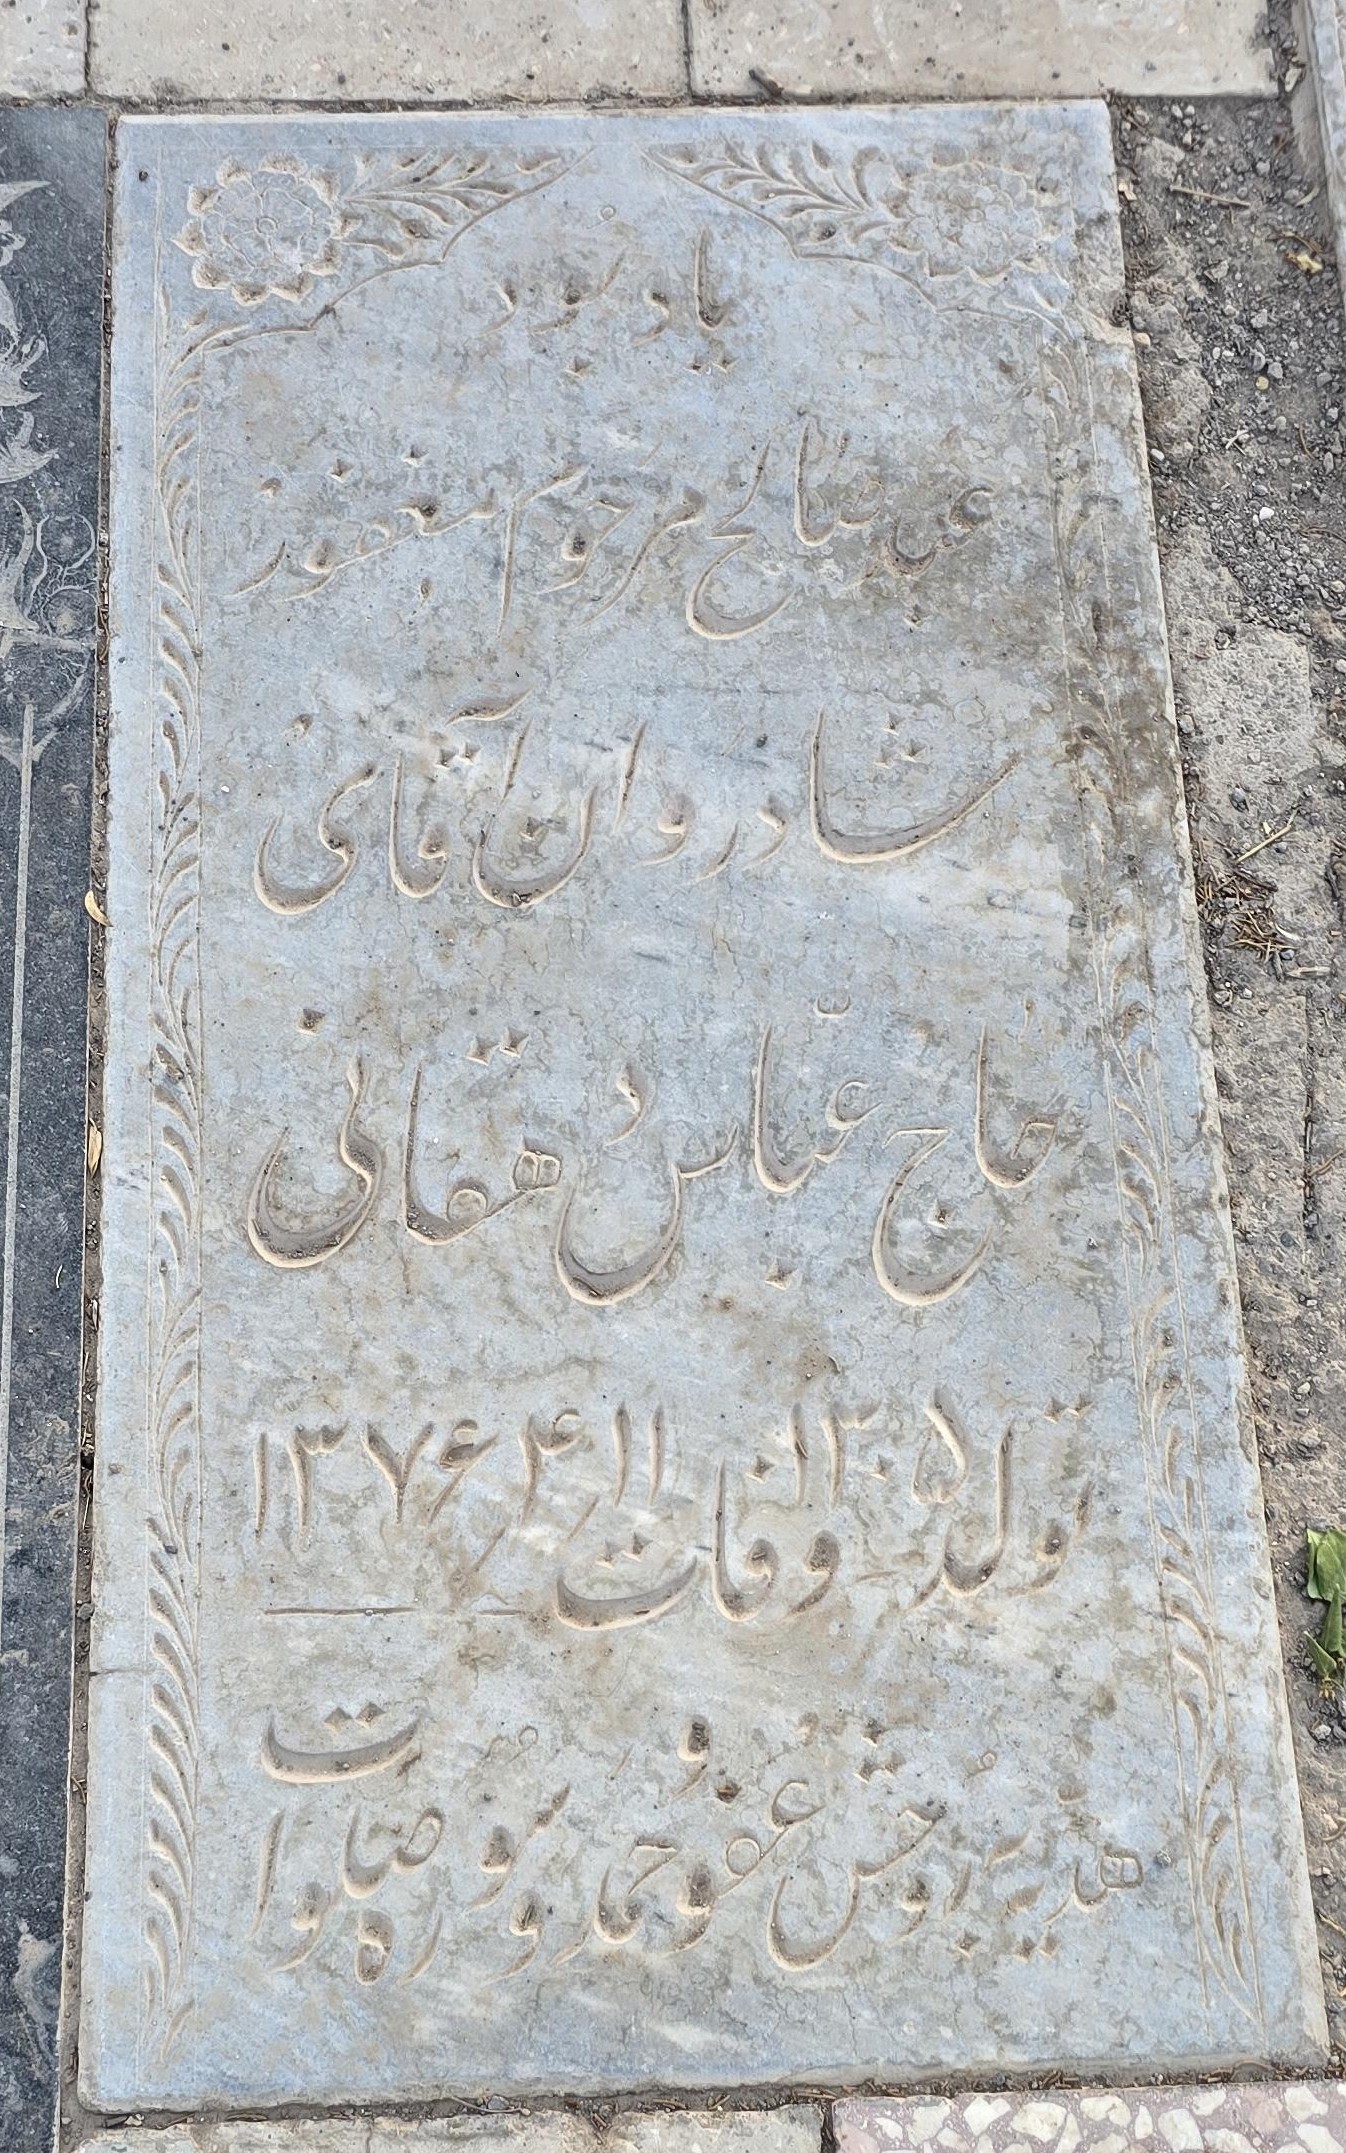 یاد بود
عبد صالح مرحوم مغفور
شادروان آقای
حاج عبّاس دهقانی
تولد ۱۳۰۵ وفات ۱۱ر۴ر۱۳۷۶
هدیه بروحش عفو و حمد و سوره و صلوات